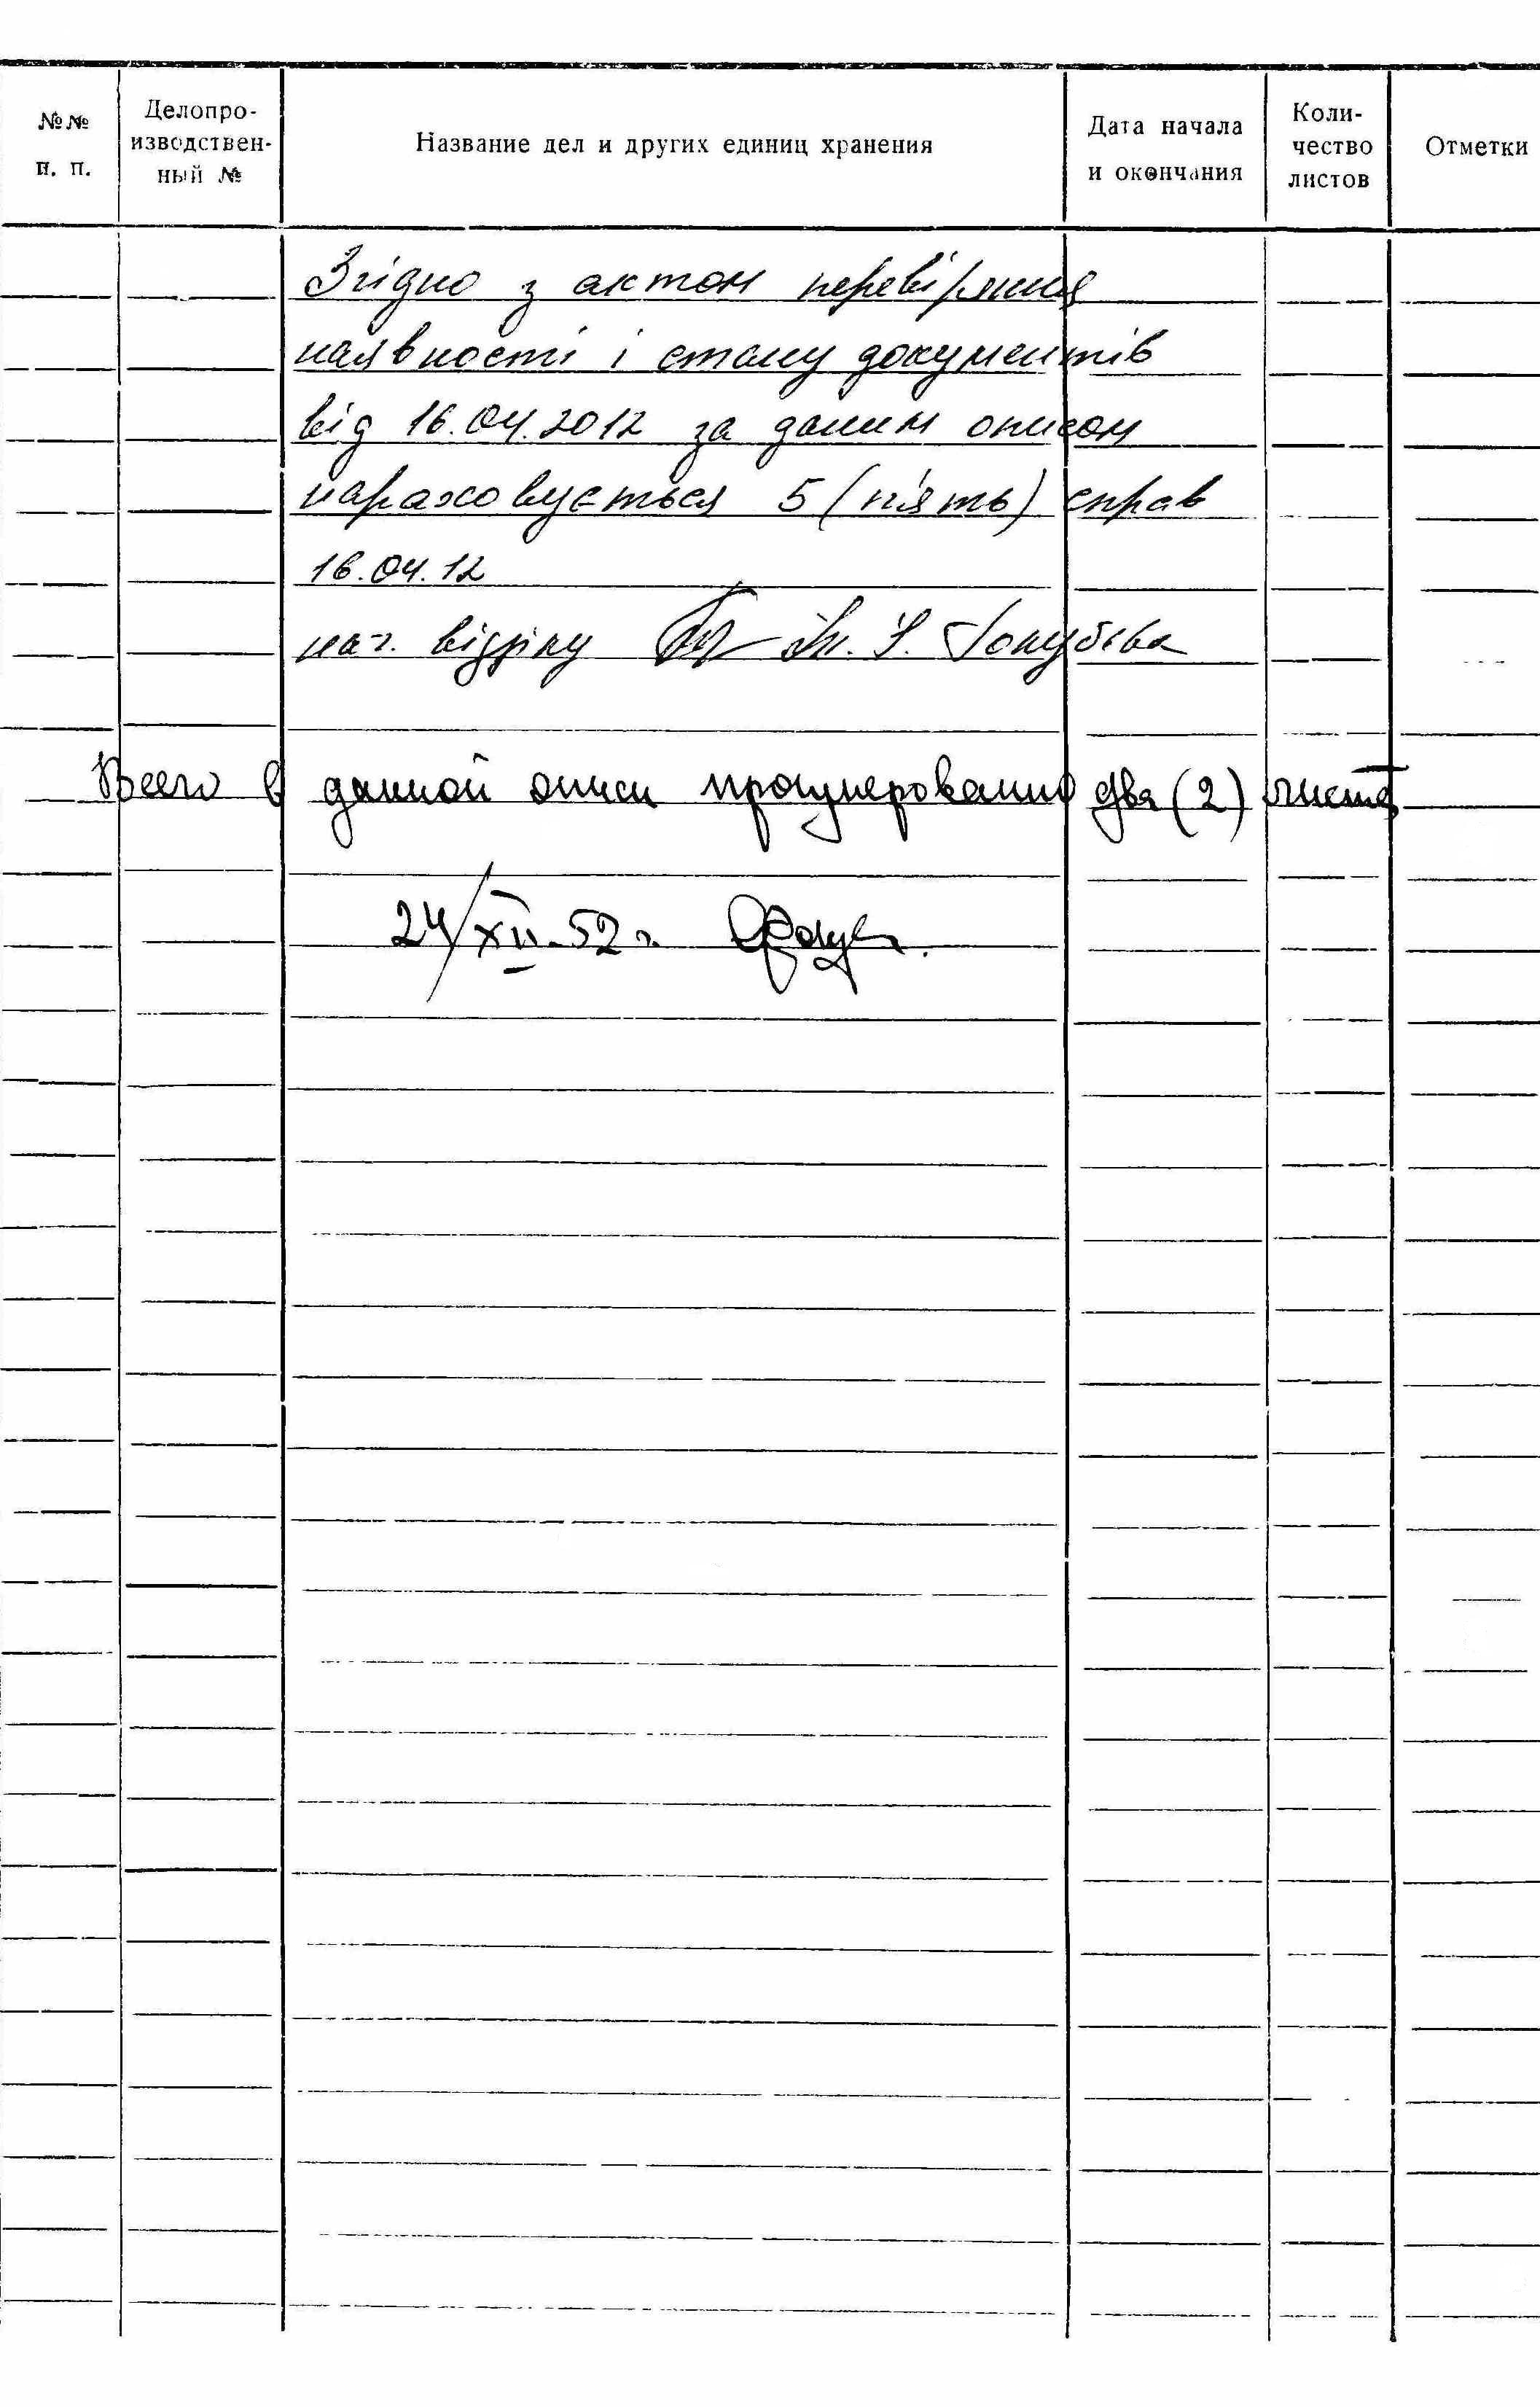 №№ п. п.
Делопро-
изводствен-
ный №
Название дел и других единиц хранения
Дата начала
и окончания
Коли-
чество
листов
Отметки
Згідно з актом перевіряння
наявності і стану документів
від 16.04.2012 за даним описом
нараховується 5 (п'ять) справ
16.04.12
нач. відділу Голубєва
Всего в данной описи пронумеровано два (2) листа
24/XII-52 г.